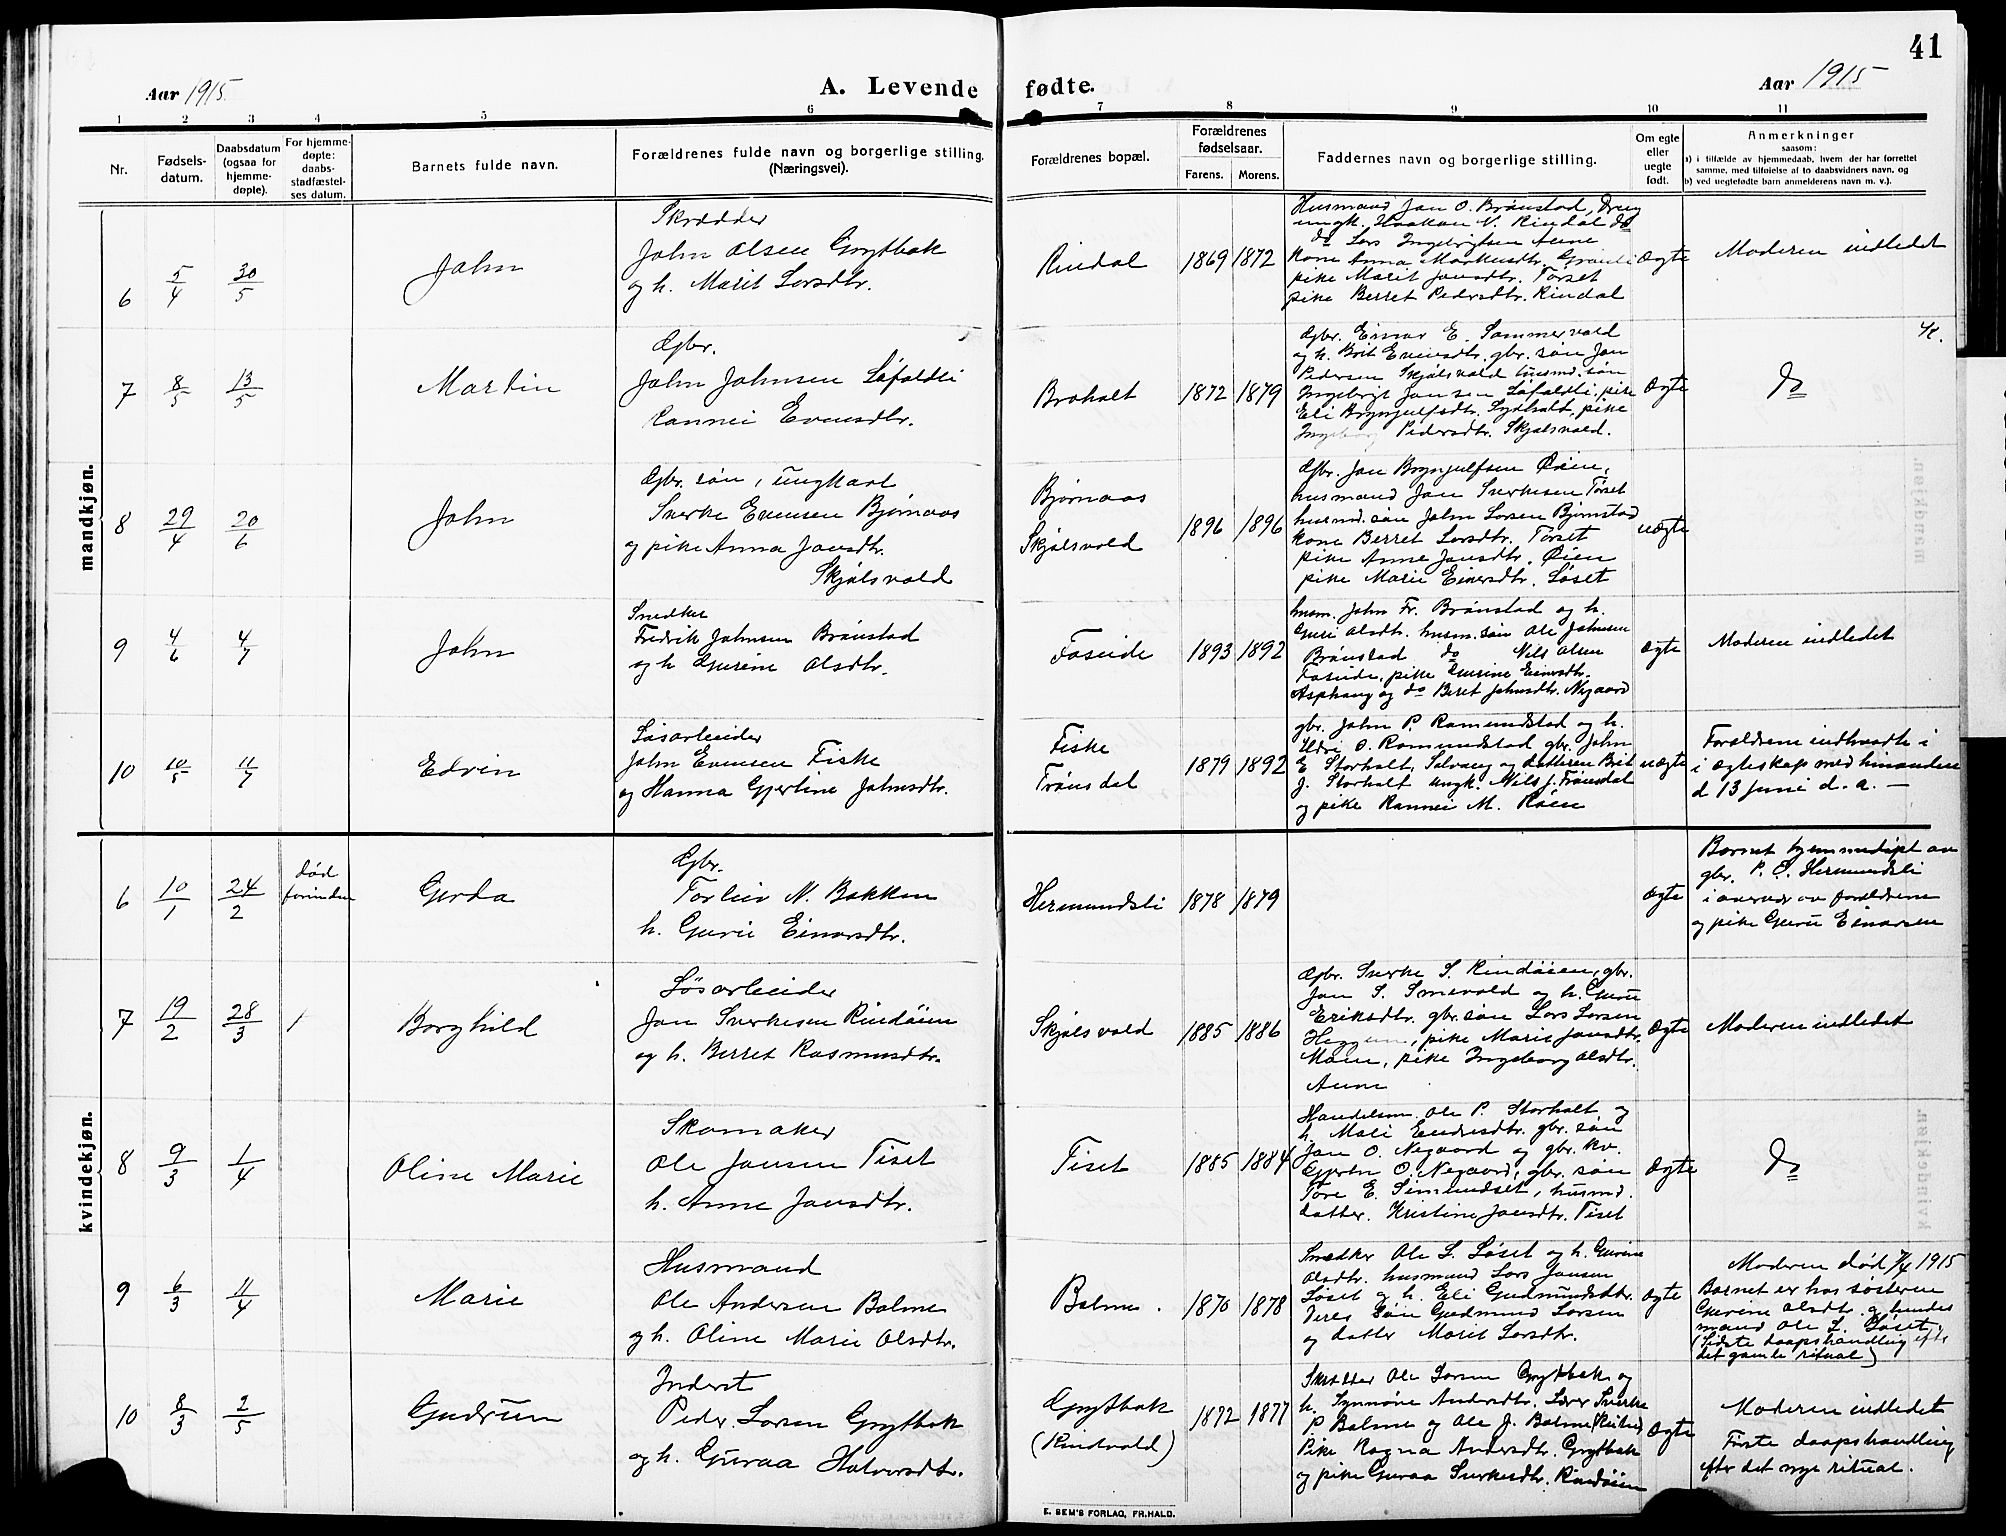 41
Aar 1915
A. Levende fødte.
Aar 1915
1 2 3 4 5 6 7 8 9 10 11
Nr.
Fødselsdatum.
Daabsdatum (ogsaa for hjemmedøpte).
For hjemmedøpte: daabsstadfæstelses datum.
Barnets fulde navn.
Forældrenes fulde navn og borgerlige stilling. (Næringsvei).
Forældrenes bopæl.
Forældrenes fødselsaar.
Farens. Morens.
Faddernes navn og borgerlige stilling.
Om egte eller uegte født.
Anmerkninger
saasom:
a) i tilfælde av hjemmedaab, hvem der har forrettet
samme, med tilføielse af to daabsvidners navn, og
b) ved uegtefødte barn anmelderens navn m. v.).
mandkjøn.
6
5/4
30/5
John
Skrædder
John Olsen Grytbak
og h. Marit Larsdtr.
Rindal
1869 1872
Husmand Jon O. Brønstad, Dreng
ungk. Haakon N. Rindal do
do Lars Ingebrigtsen Aune
Kone Anna Markusdtr.
pike Marit Jonsdtr. Tørset
pike Berret Pedersdtr. Rindal
Ægte
Moderen indledet
7
8/5
13/5
Martin
Gbr.
John Johnsen Løfaldli
Rannei Evensdtr.
Broholt
1872 1879
Gbr. Einar E. Sommervold
og h. Brit Evensdtr. gbr. søn Jon
Pedersen Skjølsvold husmd. søn
Ingebrigt Jonsen Løfaldli, pike
Eli Brynjulfsdtr. Sydhalt, pike
Ingeborg Pedersdtr. Skjølsvold.
Ægte
Do
8
29/4
20/6
John
Gbr. søn, ungkarl
Sverke Evensen Bjørnaas
og pike Anna Jonsdtr.
Skjølsvold
Bjørnaas
Skjølsvold
1896 1896
Gbr. Jon Brynjulfsen Øien,
husmand Jon Sverkesen Tørset
husmd. søn John Larsen Bjørnstad
kone Berret Larsdtr. Tørset
pike Anne Jonsdtr. Øien
pike Marie Einersdtr. Løset
uægte
9
4/6
4/7
John
Snedker
Fredrik Johnsen Brønstad
og h. Gurine Olsdtr.
Foseide
1893 1892
husm. John Fr. Brønstad og h.
Guri Olsdtr. husm. søn Ole Johnsen
Brønstad do Nils Olsen
Foseide, pike Gurine Einarsdtr.
Asphaug og do Beret Johnsdtr. Nygaard
Ægte
Moderen indledet
10
10/5
11/7
Edvin
Løsarbeider
John Evensen Fiske
og Hanna Gjertine Johnsdtr.
Fiske
Trønsdal
1879 1892
gbr. John P. Romundstad og h.
Ildri O. Romundstad gbr. John
E Storholt, Solvang og datteren Brit
J. Storholt ungk. Nils J. Trønsdal
og pike Rannei M. Røen
uægte
Forældrene indtraadte i
i ægteskap med hinanden
d 13 juni d. a. —
kvindekjøn.
6
10/1
24/2
død forinden
Gerda
Gbr.
Torleiv N. Bakken
h. Guri Einarsdtr.
Hermundsli
1878 1879
Ægte
Barnet hjemmedøpt av
gbr. P. E. Hermundsli
i overvær av forældrene
og pike Guru Einarsen
7
19/2
28/3
Borghild
Løsarbeider
Jon Sverkesen Rindøien
og h. Berret Rasmusdtr.
Skjølsvold
1885 1886
Gbr. Sverke S. Rindøien, gbr.
Jon S. Smevold og h. Guru
Eriksdtr. gbr. søn Lars Larsen
Heggem, pike Marie Jonsdtr.
Moen, pike Ingeborg Olsdtr.
Aune
Ægte
Moderen indledet
8
9/3
1/4
Oline Marie
Skomaker
Ole Jonsen Tiset
h. Anne Jonsdtr.
Tiset
1885 1884
Handelsm. Ole P. Storholt og
h. Mali Endresdtr. gbr. søn
Jon O. Negaard og gbr. kv.
Gjertru O. Negaard, gbr. søn
Tore E. Simundset, husmd.
datter. Kristine Jonsdtr. Tiset
Ægte
Do
9
6/3
11/4
Marie
Husmand
Ole Andersen Bolme
og h. Oline Marie Olsdtr.
Bolme.
1870 1878
Snedker Ole L. Løset og h. Gurine
Olsdtr. husmand Lars Jonsen
Løset og h. Eli Gudmundsdtr.
Deres søn Gudmund Larsen
og datter Marit Larsdtr.
Ægte
Moderen død 7/4 1915
Barnet er hos søsteren
Gurine Olsdtr. og hendes
mand Ole L. Løset.
(Sidste daapshandling efter
det gamle ritual)
10
8/3
2/5
Gudrun
Inderst
Peder Larsen Grytbak
og h. Guraa Halvorsdtr.
Grytbak
(Rindvold)
1872 1877
Skrædder Ole Larsen Grytbak og
h. Synnøve Andersdtr. Lærer Sverke
P. Bolme og Ole J. Bolme
Pike Ragna Andersdtr. Grytbak
og pike Guraa Sverkesdtr. Rindøien
Ægte
Moderen indledet
Første daapshandling
efter det nye ritual.
E. SEM'S FORLAG, FR.HALD.